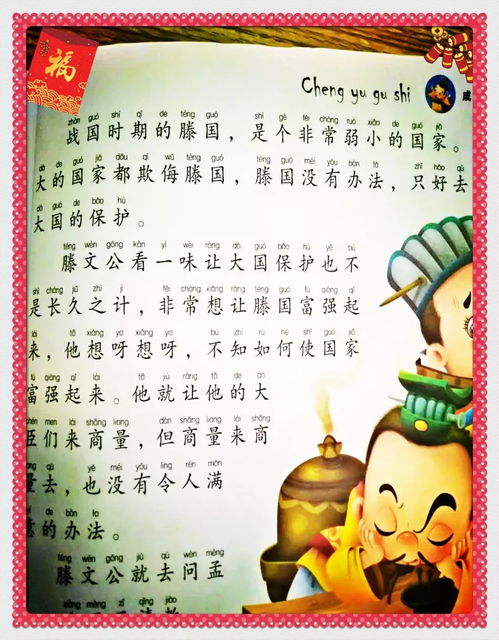 福
Cheng yu gu shi
成
zhàn guó shí qī de téng guó shì gè fēi cháng ruò xiǎo de guó jiā
战国时期的滕国，是个非常弱小的国家。
dà de guó jiā dōu qī wǔ téng guó téng guó méi yǒu bàn fǎ zhǐ hǎo qù
大的国家都欺侮滕国，滕国没有办法，只好去
dà guó de bǎo hù
大国的保护。
téng wén gōng kàn yí wèi ràng dà guó bǎo hù yě bù
滕文公看一味让大国保护也不
shì cháng jiǔ zhī jì fēi cháng xiǎng ràng téng guó fù qiáng qǐ
是长久之计，非常想让滕国富强起
lái tā xiǎng ya xiǎng ya bù zhī rú hé shǐ guó jiā
来，他想呀想呀，不知如何使国家
fù qiáng qǐ lái tā jiù ràng tā de dà
富强起来。他就让他的大
chén men lái shāng liang dàn shāng liang lái shāng
臣们来商量，但商量来商
liang qù yě méi yǒu lìng rén mǎn
量去，也没有令人满
yì de bàn fǎ
意的办法。
téng wén gōng jiù qù wèn mèng
滕文公就去问孟
xiàng mèng zǐ qǐng jiào